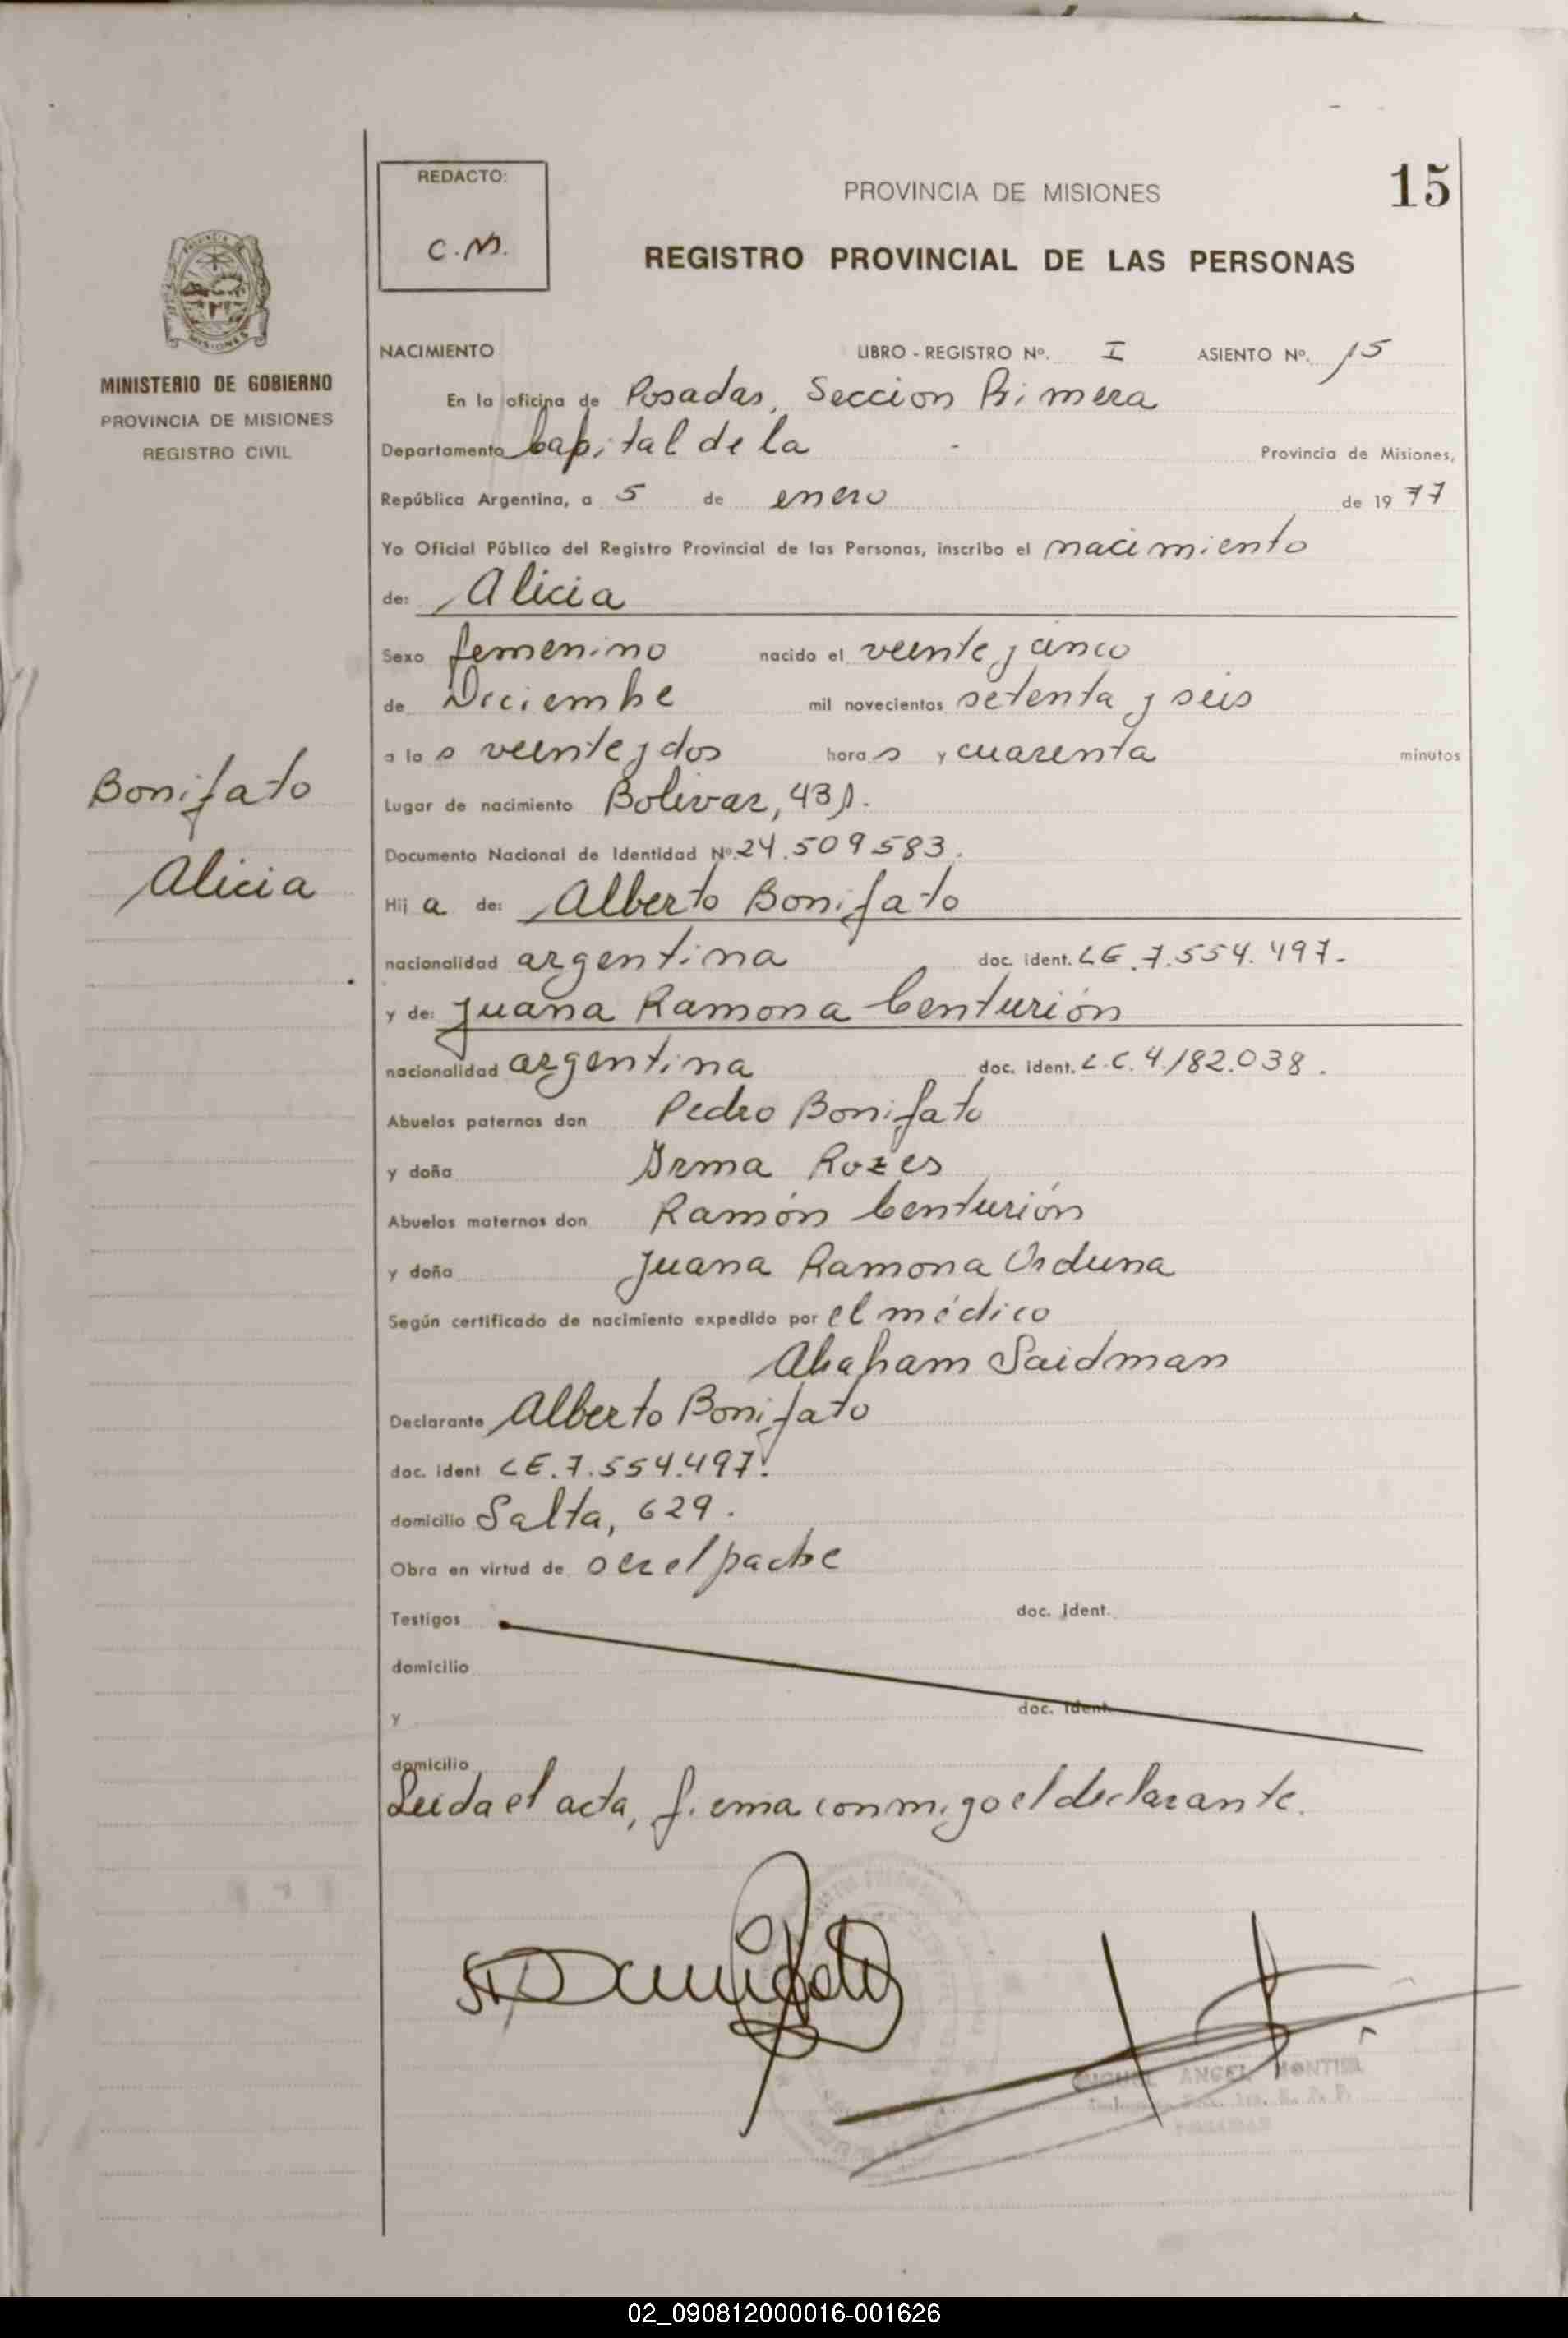 REDACTO:
C.M.
PROVINCIA DE MISIONES
15
REGISTRO PROVINCIAL DE LAS PERSONAS
MINISTERIO DE GOBIERNO
PROVINCIA DE MISIONES
REGISTRO CIVIL
Bonifato
Alicia
NACIMIENTO LIBRO - REGISTRO Nº. I ASIENTO Nº. 15
En la oficina de Posadas, Seccion Primera
Departamento Capital de la - Provincia de Misiones,
República Argentina, a 5 de enero de 1977
Yo Oficial Público del Registro Provincial de las Personas, inscribo el nacimiento
de: Alicia
Sexo femenino nacido el veinte y cinco
de Diciembre mil novecientos setenta y seis
a las veinte y dos horas y cuarenta minutos
Lugar de nacimiento Bolivar,
Documento Nacional de Identidad Nº. 24.509583.
Hija de: Alberto Bonifato
nacionalidad argentina doc. ident. LE.7.554.497.
y de: Juana Ramona Centurión
nacionalidad argentina doc. ident. L.C.4.182.038.
Abuelos paternos don Pedro Bonifato
y doña Irma Rozes
Abuelos maternos don Ramón Centurión
y doña Juana Ramona Orduna
Según certificado de nacimiento expedido por el médico
Abraham Saidman
Declarante Alberto Bonifato
doc. ident LE.7.554.497.
domicilio Salta, 629.
Obra en virtud de ser el padre
Testigos doc. ident.
domicilio
y doc. ident.
domicilio
Leida el acta, firma conmigo el declarante.
MIGUEL ANGEL MONTIEL
02_090812000016-001626